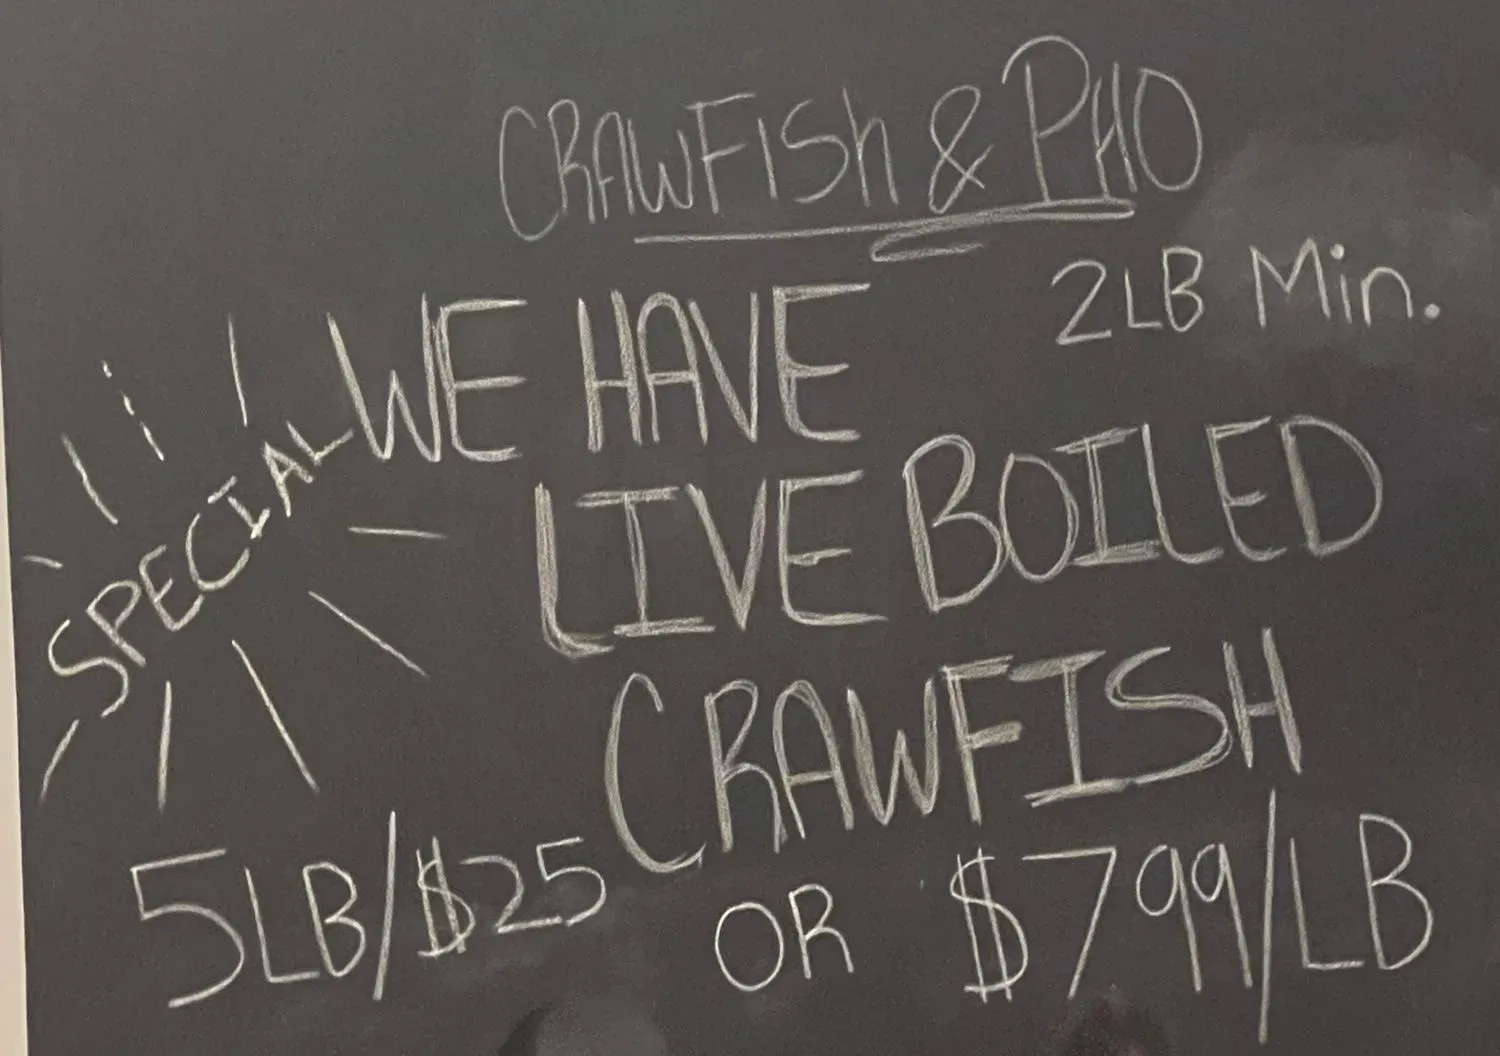 CRAWFISh & PHO
2LB Min.
WE HAVE
LIVE BOILED
CRAWFISH
SPECIAL
5LB/$25 OR $799/LB